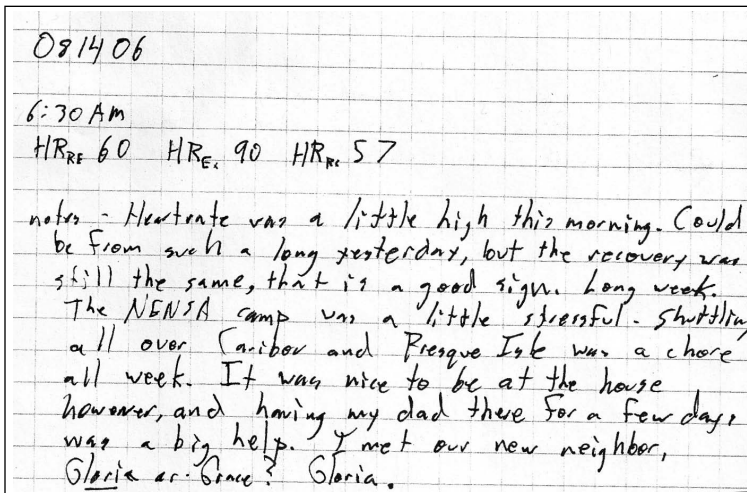 081406
6:30 AM
HR RE 60 HR Ex 90 HR Rc 57
notes - Heartrate was a little high this morning. Could
be from such a long yesterday, but the recovery was
still the same, that is a good sign. Long week.
The NENSA camp was a little stressful. Shuttling
all over Caribou and Presque Isle was a chore
all week. It was nice to be at the house
however, and having my dad there for a few days
was a big help. I met our new neighbor,
Gloria or Grace? Gloria.